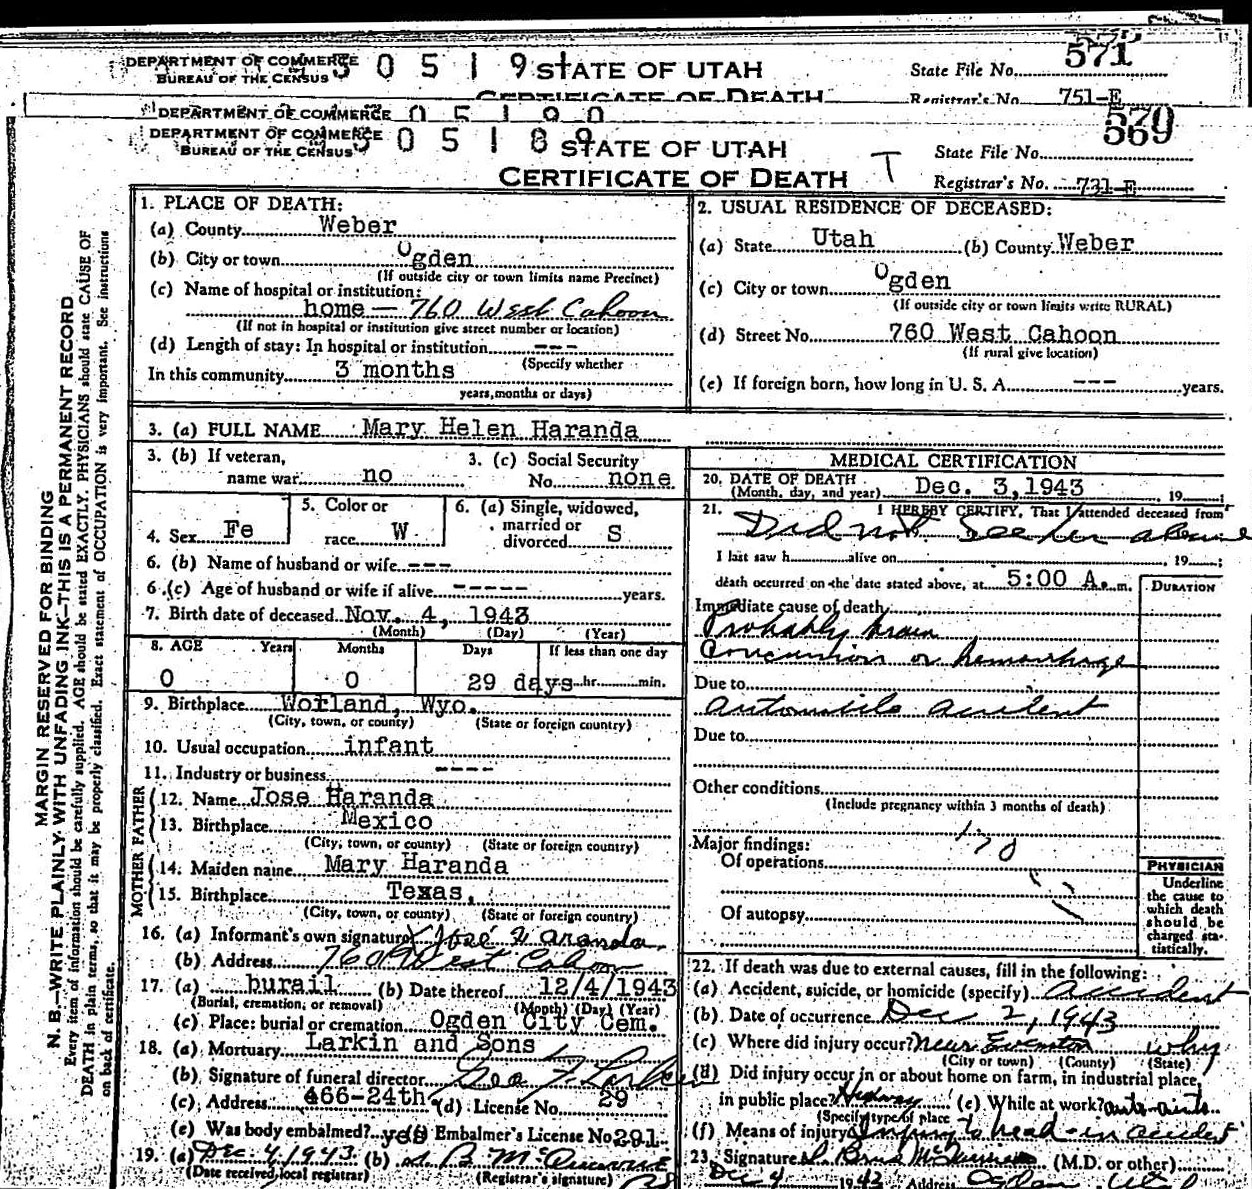 DEPARTMENT OF COMMERCE
BUREAU OF THE CENSUS
3 0 5 1 9
STATE OF UTAH
State File No. 571
CERTIFICATE OF DEATH
Registrar's No. 751-E
DEPARTMENT OF COMMERCE
DEPARTMENT OF COMMERCE
BUREAU OF THE CENSUS
STATE OF UTAH
State File No.
CERTIFICATE OF DEATH T
Registrar's No. 731-E
MARGIN RESERVED FOR BINDING
N. B.—WRITE PLAINLY WITH UNFADING INK—THIS IS A PERMANENT RECORD
Every item of information should be carefully supplied. AGE should be stated EXACTLY. PHYSICIANS should state CAUSE OF
DEATH in plain terms, so that it may be properly classified. Exact statement of OCCUPATION is very important. See instructions
on back of certificate.
1. PLACE OF DEATH:
(a) County Weber
(b) City or town Ogden
(If outside city or town limits name Precinct)
(c) Name of hospital or institution:
home — 760 West Cahoon
(If not in hospital or institution give street number or location)
(d) Length of stay: In hospital or institution ---
(Specify whether
In this community 3 months
years, months or days)
2. USUAL RESIDENCE OF DECEASED:
(a) State Utah (b) County Weber
(c) City or town Ogden
(If outside city or town limits write RURAL)
(d) Street No. 760 West Cahoon
(If rural give location)
(e) If foreign born, how long in U. S. A. --- years.
3. (a) FULL NAME Mary Helen Haranda
3. (b) If veteran, name war no
3. (c) Social Security No. none
4. Sex Fe
5. Color or race W
6. (a) Single, widowed, married or divorced S
6. (b) Name of husband or wife ---
6. (c) Age of husband or wife if alive ---- years.
7. Birth date of deceased Nov. 4, 1943
(Month) (Day) (Year)
8. AGE Years Months Days If less than one day
0 0 29 days hr. min.
9. Birthplace Worland, Wyo.
(City, town, or county) (State or foreign country)
10. Usual occupation infant
11. Industry or business ----
FATHER
12. Name Jose Haranda
13. Birthplace Mexico
(City, town, or county) (State or foreign country)
MOTHER
14. Maiden name Mary Haranda
15. Birthplace Texas,
(City, town, or county) (State or foreign country)
16. (a) Informant's own signature X José Haranda
(b) Address 760 West Cahoon
17. (a) burail (b) Date thereof 12/4/1943
(Burial, cremation, or removal) (Month) (Day) (Year)
(c) Place: burial or cremation Ogden City Cem.
18. (a) Mortuary Larkin and Sons
(b) Signature of funeral director Geo F Larkin
(c) Address 466-24th (d) License No. 29
(e) Was body embalmed? yes (f) Embalmer's License No 291
19. (a) Dec 4 1943 (b)
(Date received local registrar) (Registrar's signature)
MEDICAL CERTIFICATION
20. DATE OF DEATH
(Month, day, and year) Dec. 3, 1943, 19 ;
21. I HEREBY CERTIFY, That I attended deceased from
Did not see her alive
I last saw h alive on , 19 ;
death occurred on the date stated above, at 5:00 A. m.
DURATION
Immediate cause of death
Probably brain
Concussion or hemorrhage
Due to
automobile accident
Due to
Other conditions
(Include pregnancy within 3 months of death)
170
Major findings:
Of operations
Of autopsy
PHYSICIAN
Underline
the cause to
which death
should be
charged sta-
tistically.
22. If death was due to external causes, fill in the following:
(a) Accident, suicide, or homicide (specify) accident
(b) Date of occurrence Dec 2, 1943
(c) Where did injury occur? near Evanston Why
(City or town) (County) (State)
(d) Did injury occur in or about home on farm, in industrial place,
in public place? Highway (e) While at work?
(Specify type of place
(f) Means of injury Injury to head - in accident
23. Signature (M.D. or other)
Dec 4 1943 Address Ogden Utah